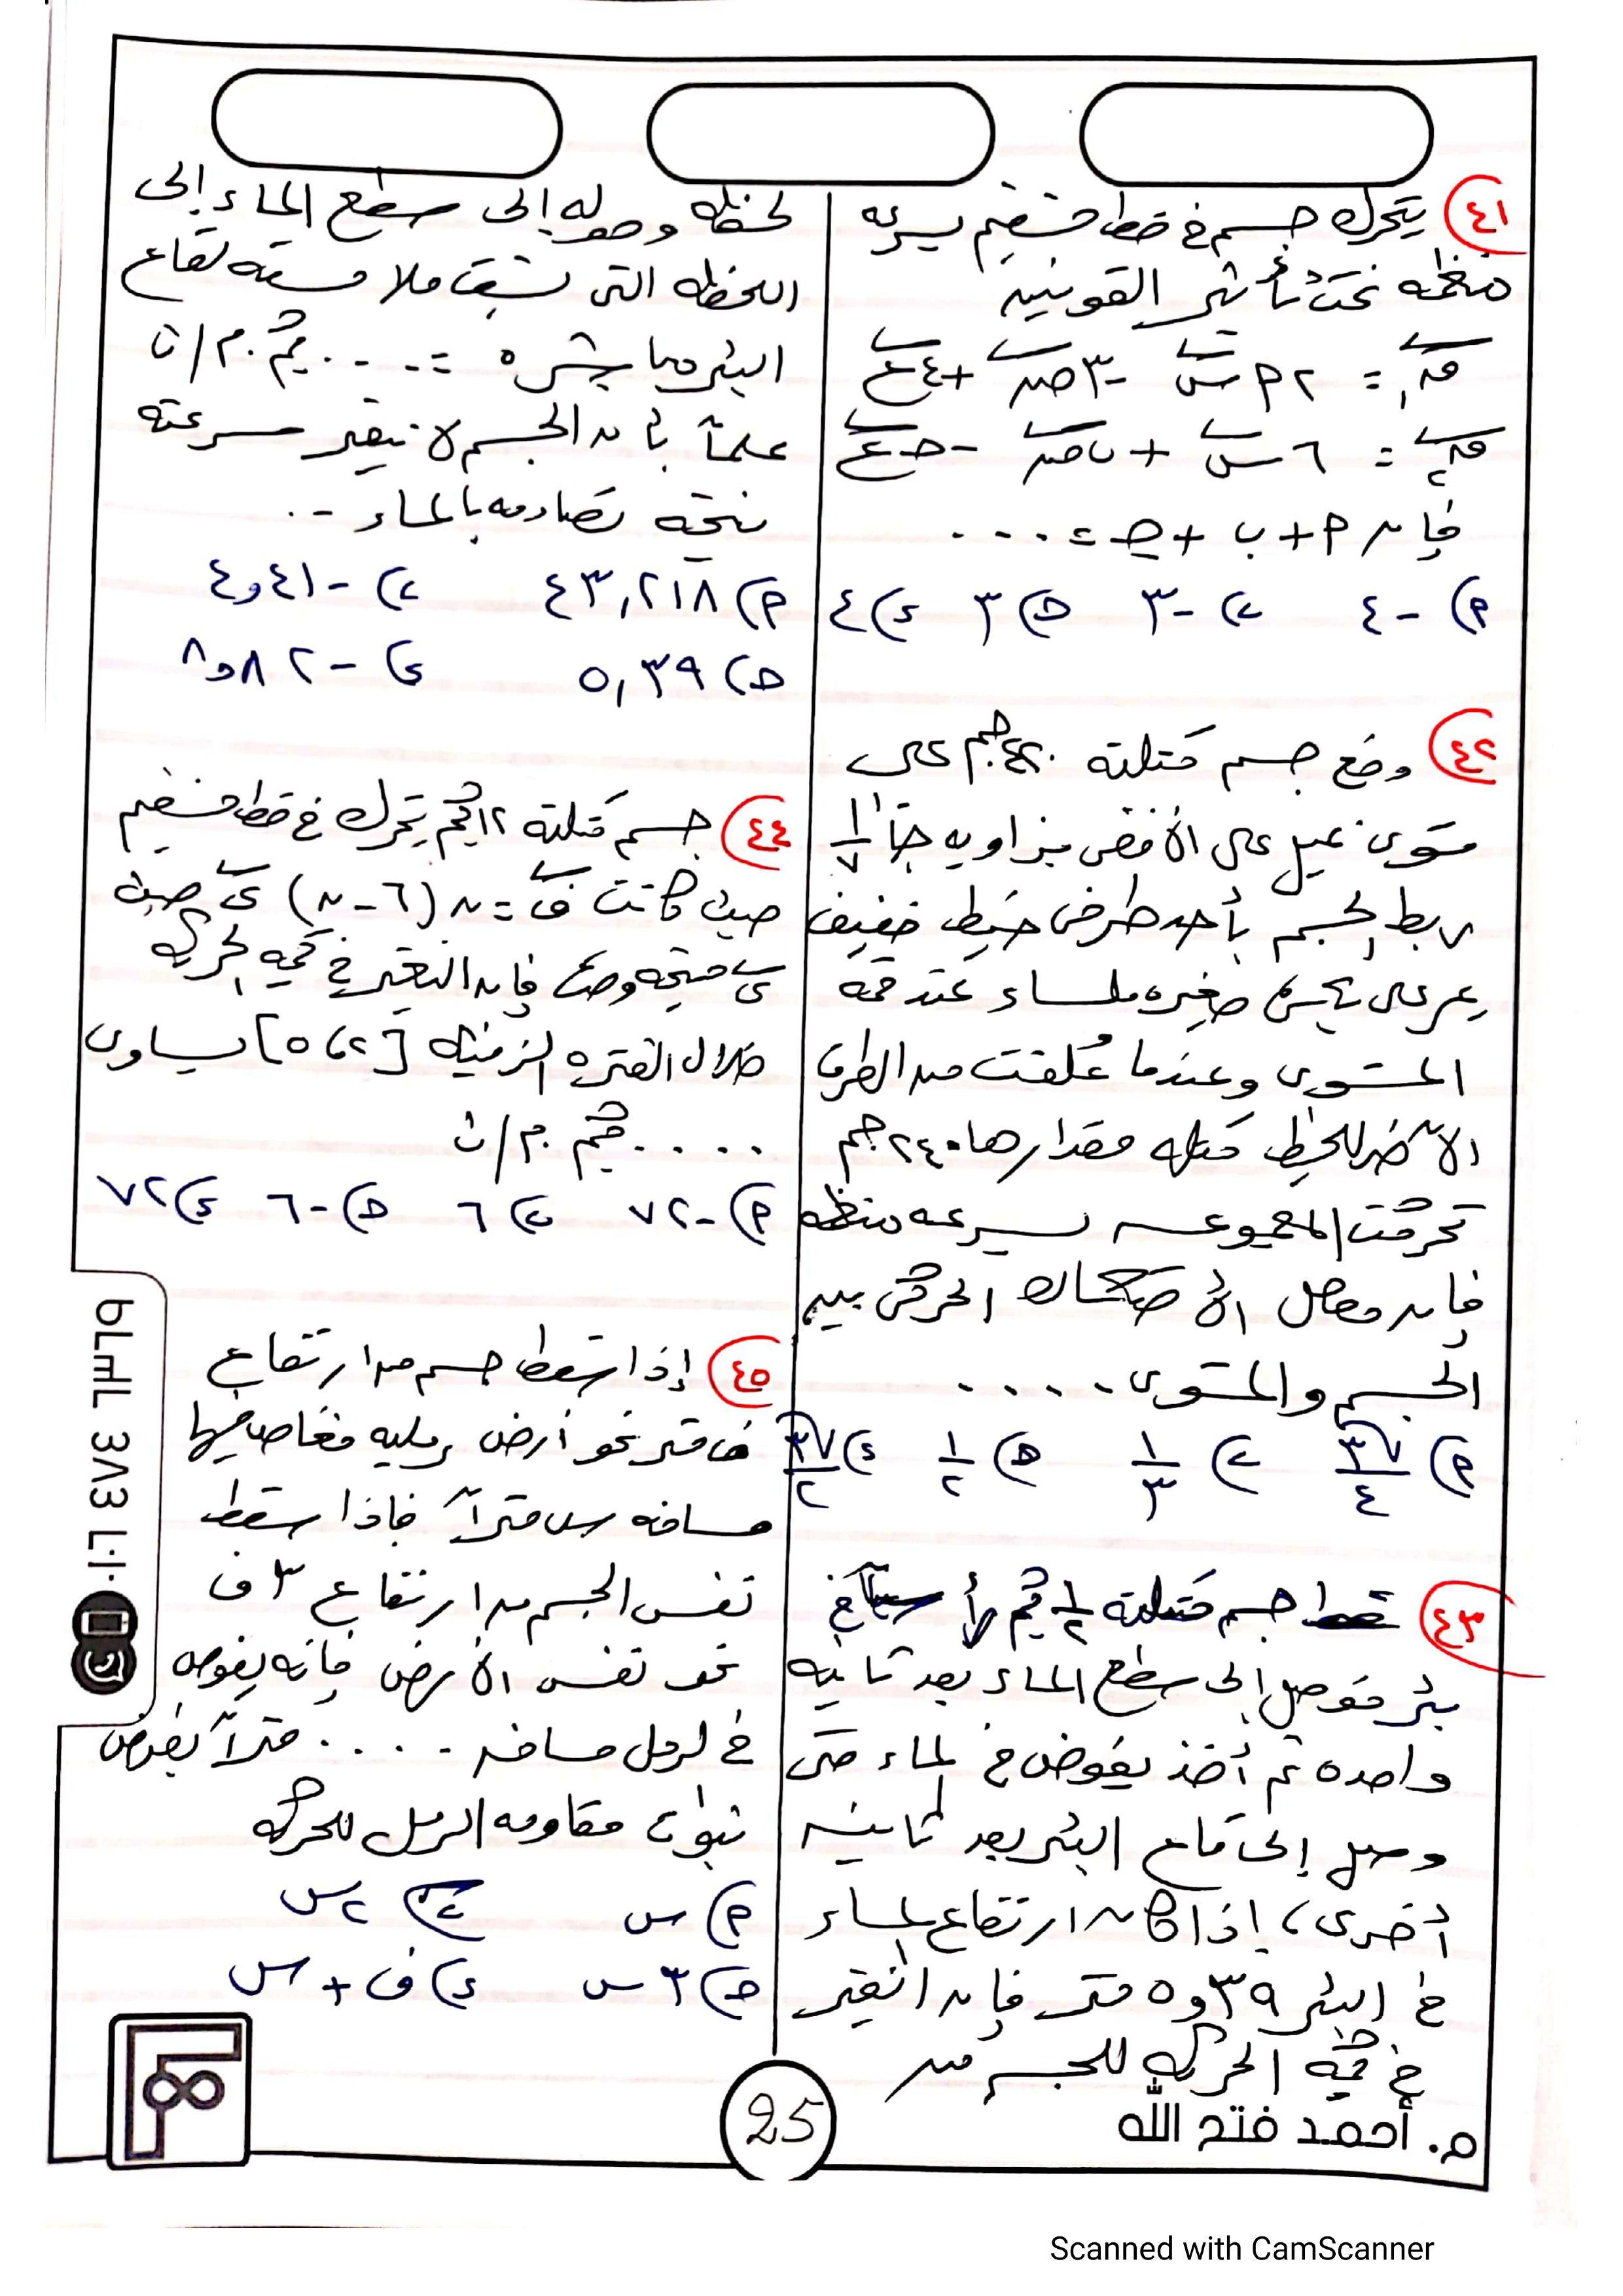 ٤١ يتحرك جسم فى خط مستقيم بسرعه
منتظمه تحت تأثير القوتين
ق١ = ٢ م س - ٣ ص + ٤ ع
ق٢ = ٦ س + ب ص - حـ ع
فإن م + ب + حـ = ....
م) -٤ ب) -٣ حـ) ٣ ء) ٤
٤٢ وضع جسم كتلته جم على
مستوى يميل على الأفقى بزاويه جتا⁻¹ ١/٧
ربط الجسم بأحد طرفى خيط خفيف
يمر على بكره صغيره ملساء عند قمة
المستوى وعندما عُلقت من الطرف
الآخر للخيط كتله مقدارها ٢٤٠ جم
تحركت المجموعه بسرعه منتظمه
فإن معامل الأحتكاك الحركى بين
الجسم والمستوى ....
م) √٣/٤ ب) ١/٣ حـ) ١/٢ ء) √٣/٢
٤٣ سقط جسم كتلته ١/٢ كجم فى
بئر فوصل إلى سطح الماء بعد ثانيه
واحده ثم أخذ يغوص فى الماء حتى
وصل إلى قاع البئر بعد ثانيه
أخرى، إذا كان ارتفاع الماء
فى البئر ٥,٣٩ متر فإن التغير
فى كمية الحركه للجسم من
لحظه وصوله إلى سطح الماء إلى
اللحظه التى تسبق ملامسته لقاع
البئر مباشره = .... كجم.م/ث
علماً بأن الجسم لا تتغير سرعته
نتيجه تصادمه بالماء .
م) ٤٣,٢١٨ ب) -٤,٤١
حـ) ٥,٣٩ ء) -٨,٨٢
٤٤ جسم كتلته ١٢ كجم يتحرك فى خط مستقيم
حيث كانت ف = ن (٦ - ن) ى حيث
ى متجه وحده فإن التغير فى كمية الحركه
خلال الفتره الزمنيه [٢، ٥] يساوى
..... كجم.م/ث
م) -٧٢ ب) ٦ حـ) -٦ ء) ٧٢
٤٥ إذا سقط جسم من ارتفاع
ف متر نحو أرض رمليه فغاص فيها
مسافه س متراً فإذا سقط
نفس الجسم من ارتفاع ٣ ف
نحو نفس الأرض فإنه يغوص
فى الرمل مسافه .... متراً بفرض
ثبوت مقاومه الرمل للحركه
م) س ب) ٢ س
حـ) ٣ س ء) ف + س
٠١٠٦ ٤٨٤ ٦٣٦٥
25
م. أحمد فتح الله
Scanned with CamScanner